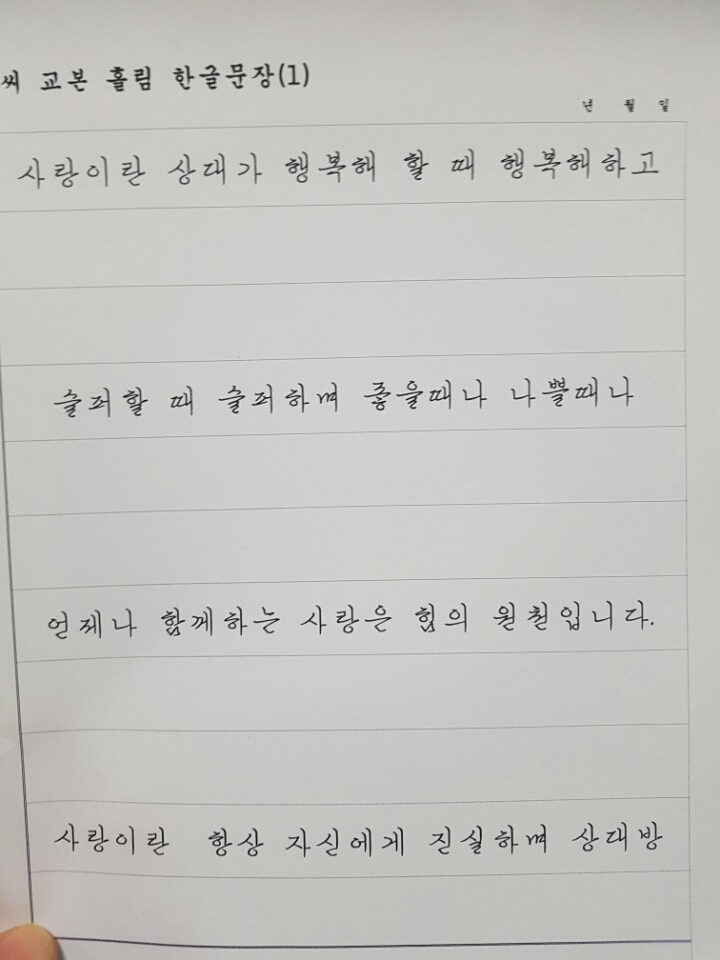 씨 교본 흘림 한글문장(1)
년 월 일
사랑이란 상대가 행복해 할 때 행복해하고
슬퍼할 때 슬퍼하며 좋을때나 나쁠때나
언제나 함께하는 사랑은 힘의 원천입니다.
사랑이란 항상 자신에게 진실하며 상대방